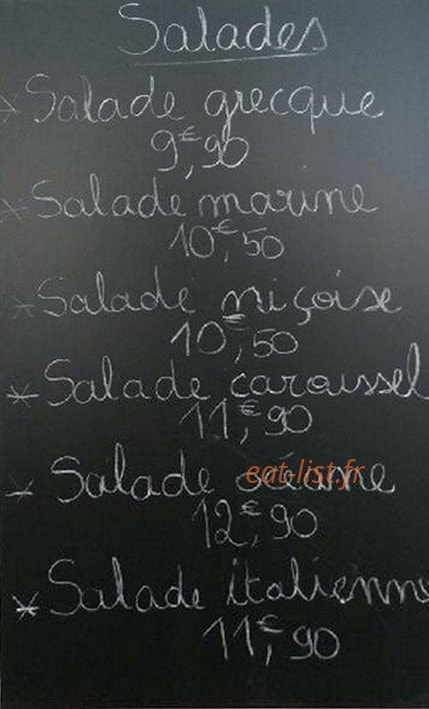 Salades
* Salade grecque
9€,90
* Salade marine
10€,50
* Salade niçoise
10€,50
* Salade caroussel
11€,90
* Salade
eat-list.fr
12€,90
* Salade italienne
11€,90